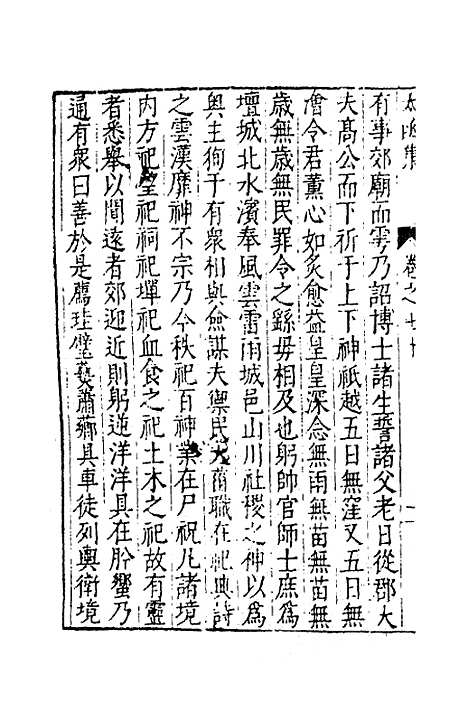 太函集 卷之七十
有事郊廟而雩乃詔博士諸生誓諸父老日從郡大
夫高公而下祈于上下神祇越五日無霪又五日無
澮令君薰心如炙愈益皇皇深念無雨無苗無苗無
歲無歲無民罪令之繇毋相及也躬帥官師士庶為
壇城北水濱奉風雲雷雨城邑山川社稷之神以為
輿主徇于有眾相與僉謀夫禦民大菑職在祀典詩
之雲漢靡神不宗乃今秩祀百神業在尸祝凡諸境
內方祀望祀祠祀墠祀血食之祀土木之祀故有靈
者悉舉以聞遠者郊迎近則躬逆洋洋具在肸蠁乃
通有眾曰善於是薦珪璧爇蕭薌具車徒列輿衛境